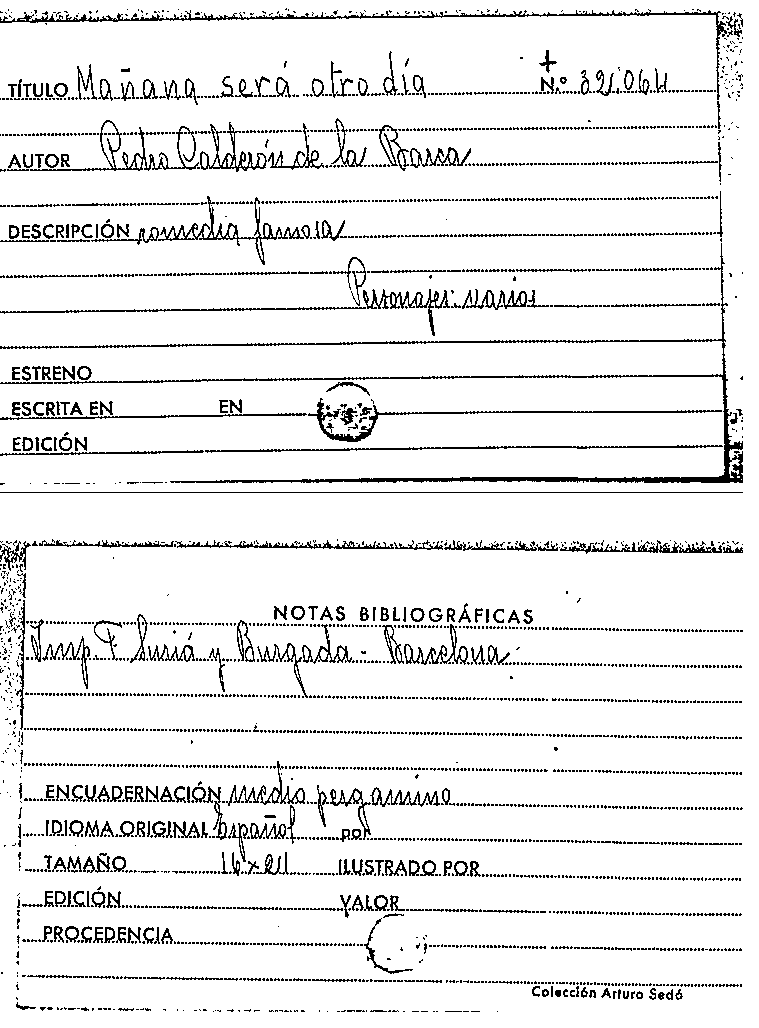 TÍTULO Mañana será otro día N.º
AUTOR Pedro Calderón de la Barca
DESCRIPCIÓN comedia famosa
Personajes: varios
ESTRENO
ESCRITA EN EN
EDICIÓN
NOTAS BIBLIOGRÁFICAS
Imp. F. Suriá y Burgada - Barcelona
ENCUADERNACIÓN medio pergamino
IDIOMA ORIGINAL Español por
TAMAÑO ILUSTRADO POR
EDICIÓN VALOR
PROCEDENCIA
Colección Arturo Sedó